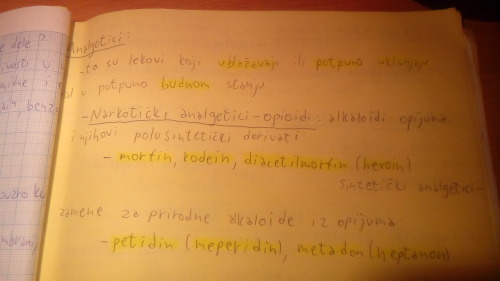 Analgetici:
-to su lekovi koji ublažavaju ili potpuno uklanjaju
bol u potpuno budnom stanju
-Narkotički analgetici-opioidi. alkaloidi opijuma
i njihovi polusintetički derivati
-morfin, kodein, diacetilmorfin (heroin)
sintetički analgetici-
zamene za prirodne alkaloide iz opijuma
-petidin (meperidin), metadon (heptanon)